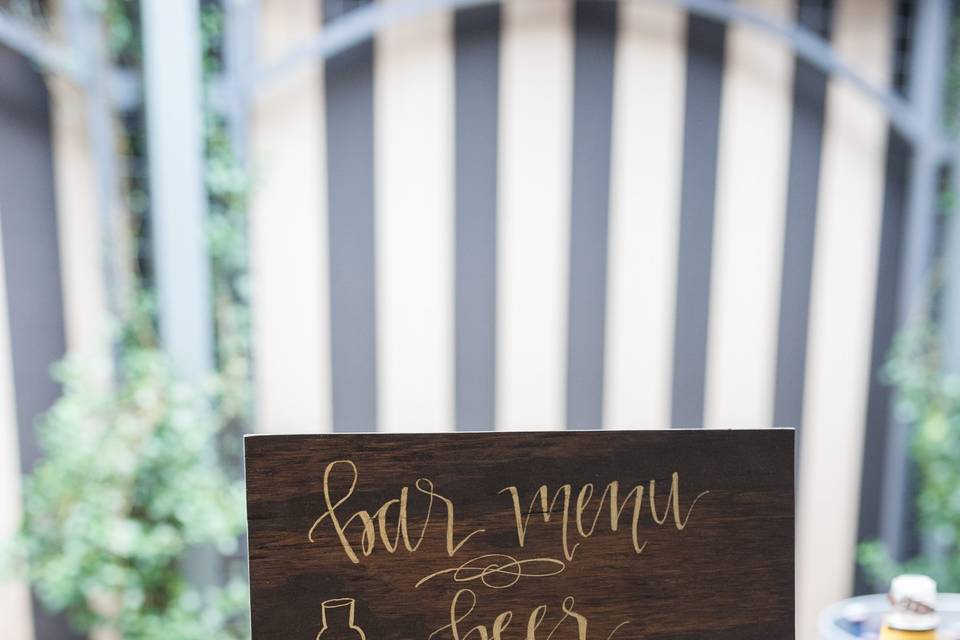 bar menu
beer